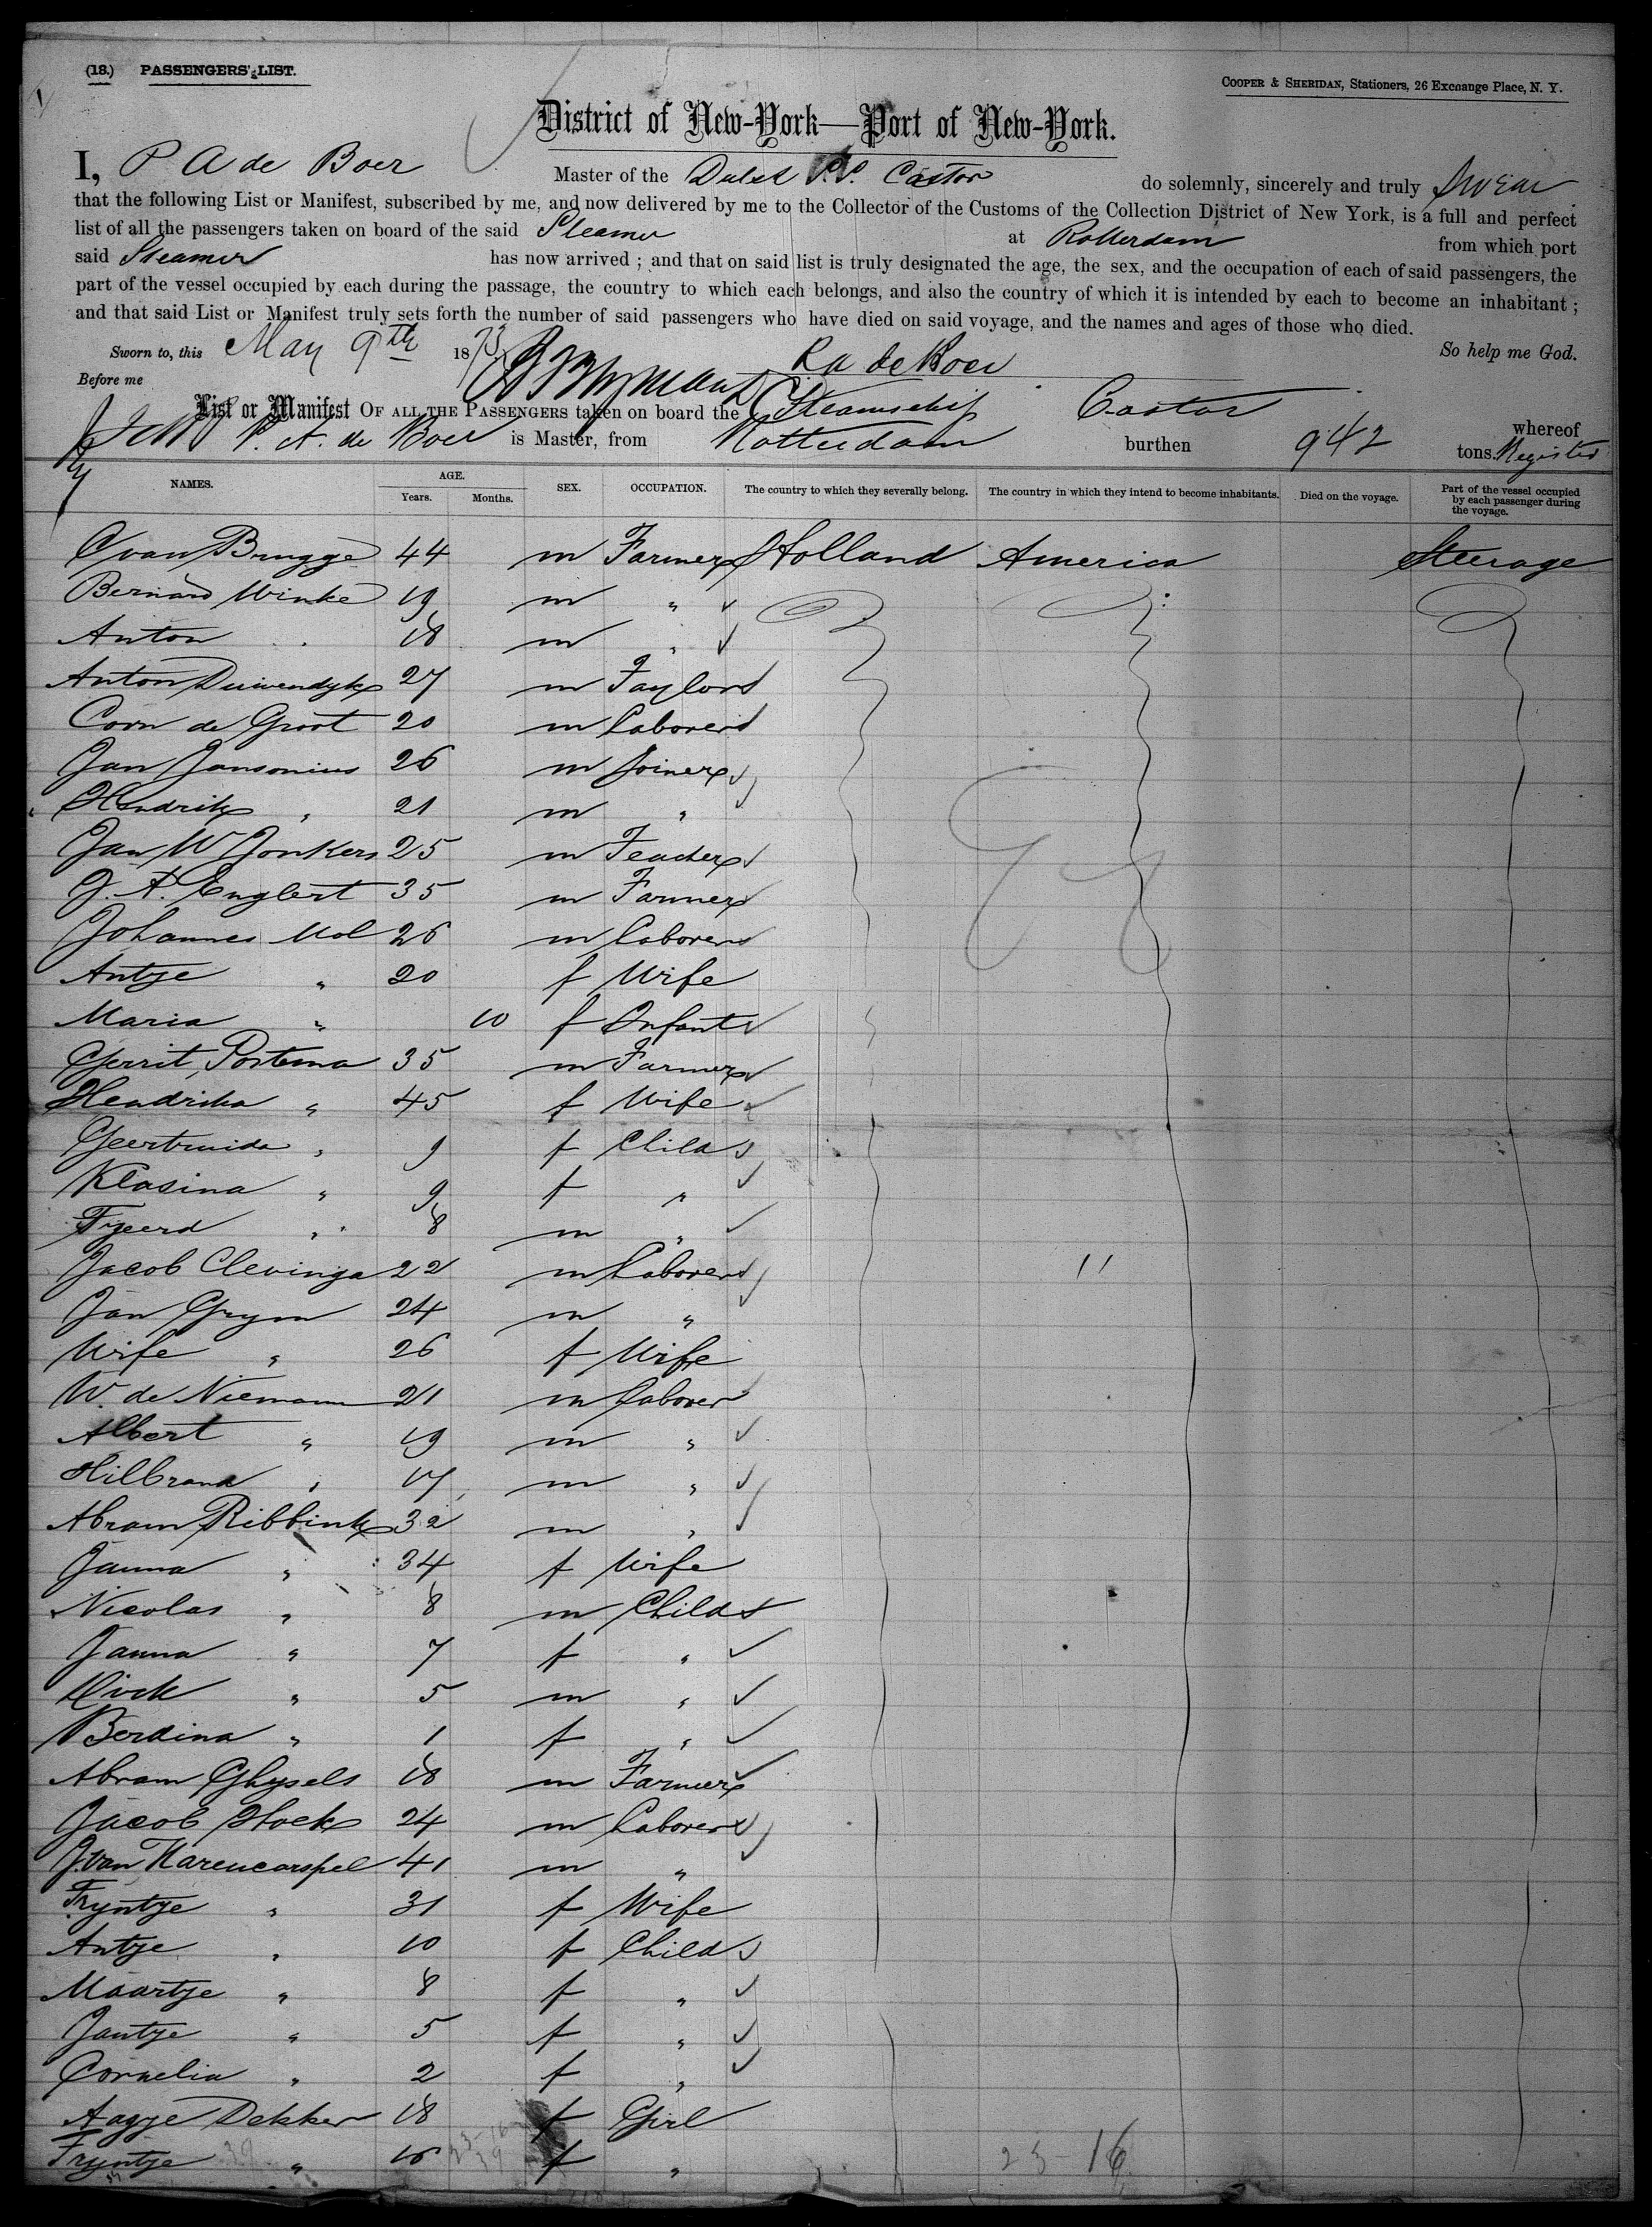 (18.) PASSENGERS' LIST.
COOPER & SHERIDAN, Stationers, 26 Exchange Place, N. Y.
District of New-York—Port of New-York.
I, P A de Boer Master of the S.S. Castor do solemnly, sincerely and truly swear
that the following List or Manifest, subscribed by me, and now delivered by me to the Collector of the Customs of the Collection District of New York, is a full and perfect
list of all the passengers taken on board of the said Steamer at Rotterdam from which port
said Steamer has now arrived ; and that on said list is truly designated the age, the sex, and the occupation of each of said passengers, the
part of the vessel occupied by each during the passage, the country to which each belongs, and also the country of which it is intended by each to become an inhabitant ;
and that said List or Manifest truly sets forth the number of said passengers who have died on said voyage, and the names and ages of those who died.
Sworn to, this May 9th 1873 So help me God.
P A de Boer
Before me
List or Manifest OF ALL THE PASSENGERS taken on board the Steamship Castor whereof
P. A. de Boer is Master, from Rotterdam burthen 942 tons. Register
NAMES. AGE. Years. Months. SEX. OCCUPATION. The country to which they severally belong. The country in which they intend to become inhabitants. Died on the voyage. Part of the vessel occupied by each passenger during the voyage.
C van Brugge 44 m Farmer Holland America Steerage
Bernard Winke 19 m "
Anton " 18 m "
Anton Duivendyk 27 m Taylor
Corn de Groot 20 m Laborer
Jan Jansonius 26 m Joiner
Hendrik " 21 m "
Jan W Jonkers 25 m Teacher
J. A. Englert 35 m Farmer
Johannes Mol 26 m Laborer
Antje " 20 f Wife
Maria " 10 f Infant
Gerrit Postema 35 m Farmer
Hendrika " 45 f Wife
Geertruida " 9 f Child
Klasina " 9 f "
Tjeerd " 8 m "
Jacob Clevinga 22 m Laborer "
Jan Grym 24 m "
Wife " 26 f Wife
W. de Niemann 21 m Laborer
Albert " 19 m "
Hilbrand " 17 m "
Abram Ribbink 32 m "
Janna " 34 f Wife
Nicolas " 8 m Child
Janna " 7 f "
Dirk " 5 m "
Berdina " 1 f "
Abram Ghysels 18 m Farmer
Jacob Stock 24 m Laborer
J. van Karencarspel 41 m "
Tryntje " 31 f Wife
Antje " 10 f Child
Maartje " 8 f "
Jantje " 5 f "
Cornelia " 2 f "
Aagje Dekker 18 f Girl
Tryntje " 16 f "
23-16